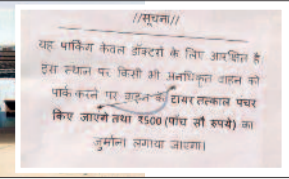 //सूचना//
यह पार्किंग केवल डॉक्टरों के लिए आरक्षित है
इस स्थान पर किसी भी अनधिकृत वाहन को
पार्क करने पर वाहन के टायर तत्काल पंचर
किए जाएंगे तथा ₹500 (पांच सौ रुपये) का
जुर्माना लगाया जाएगा।